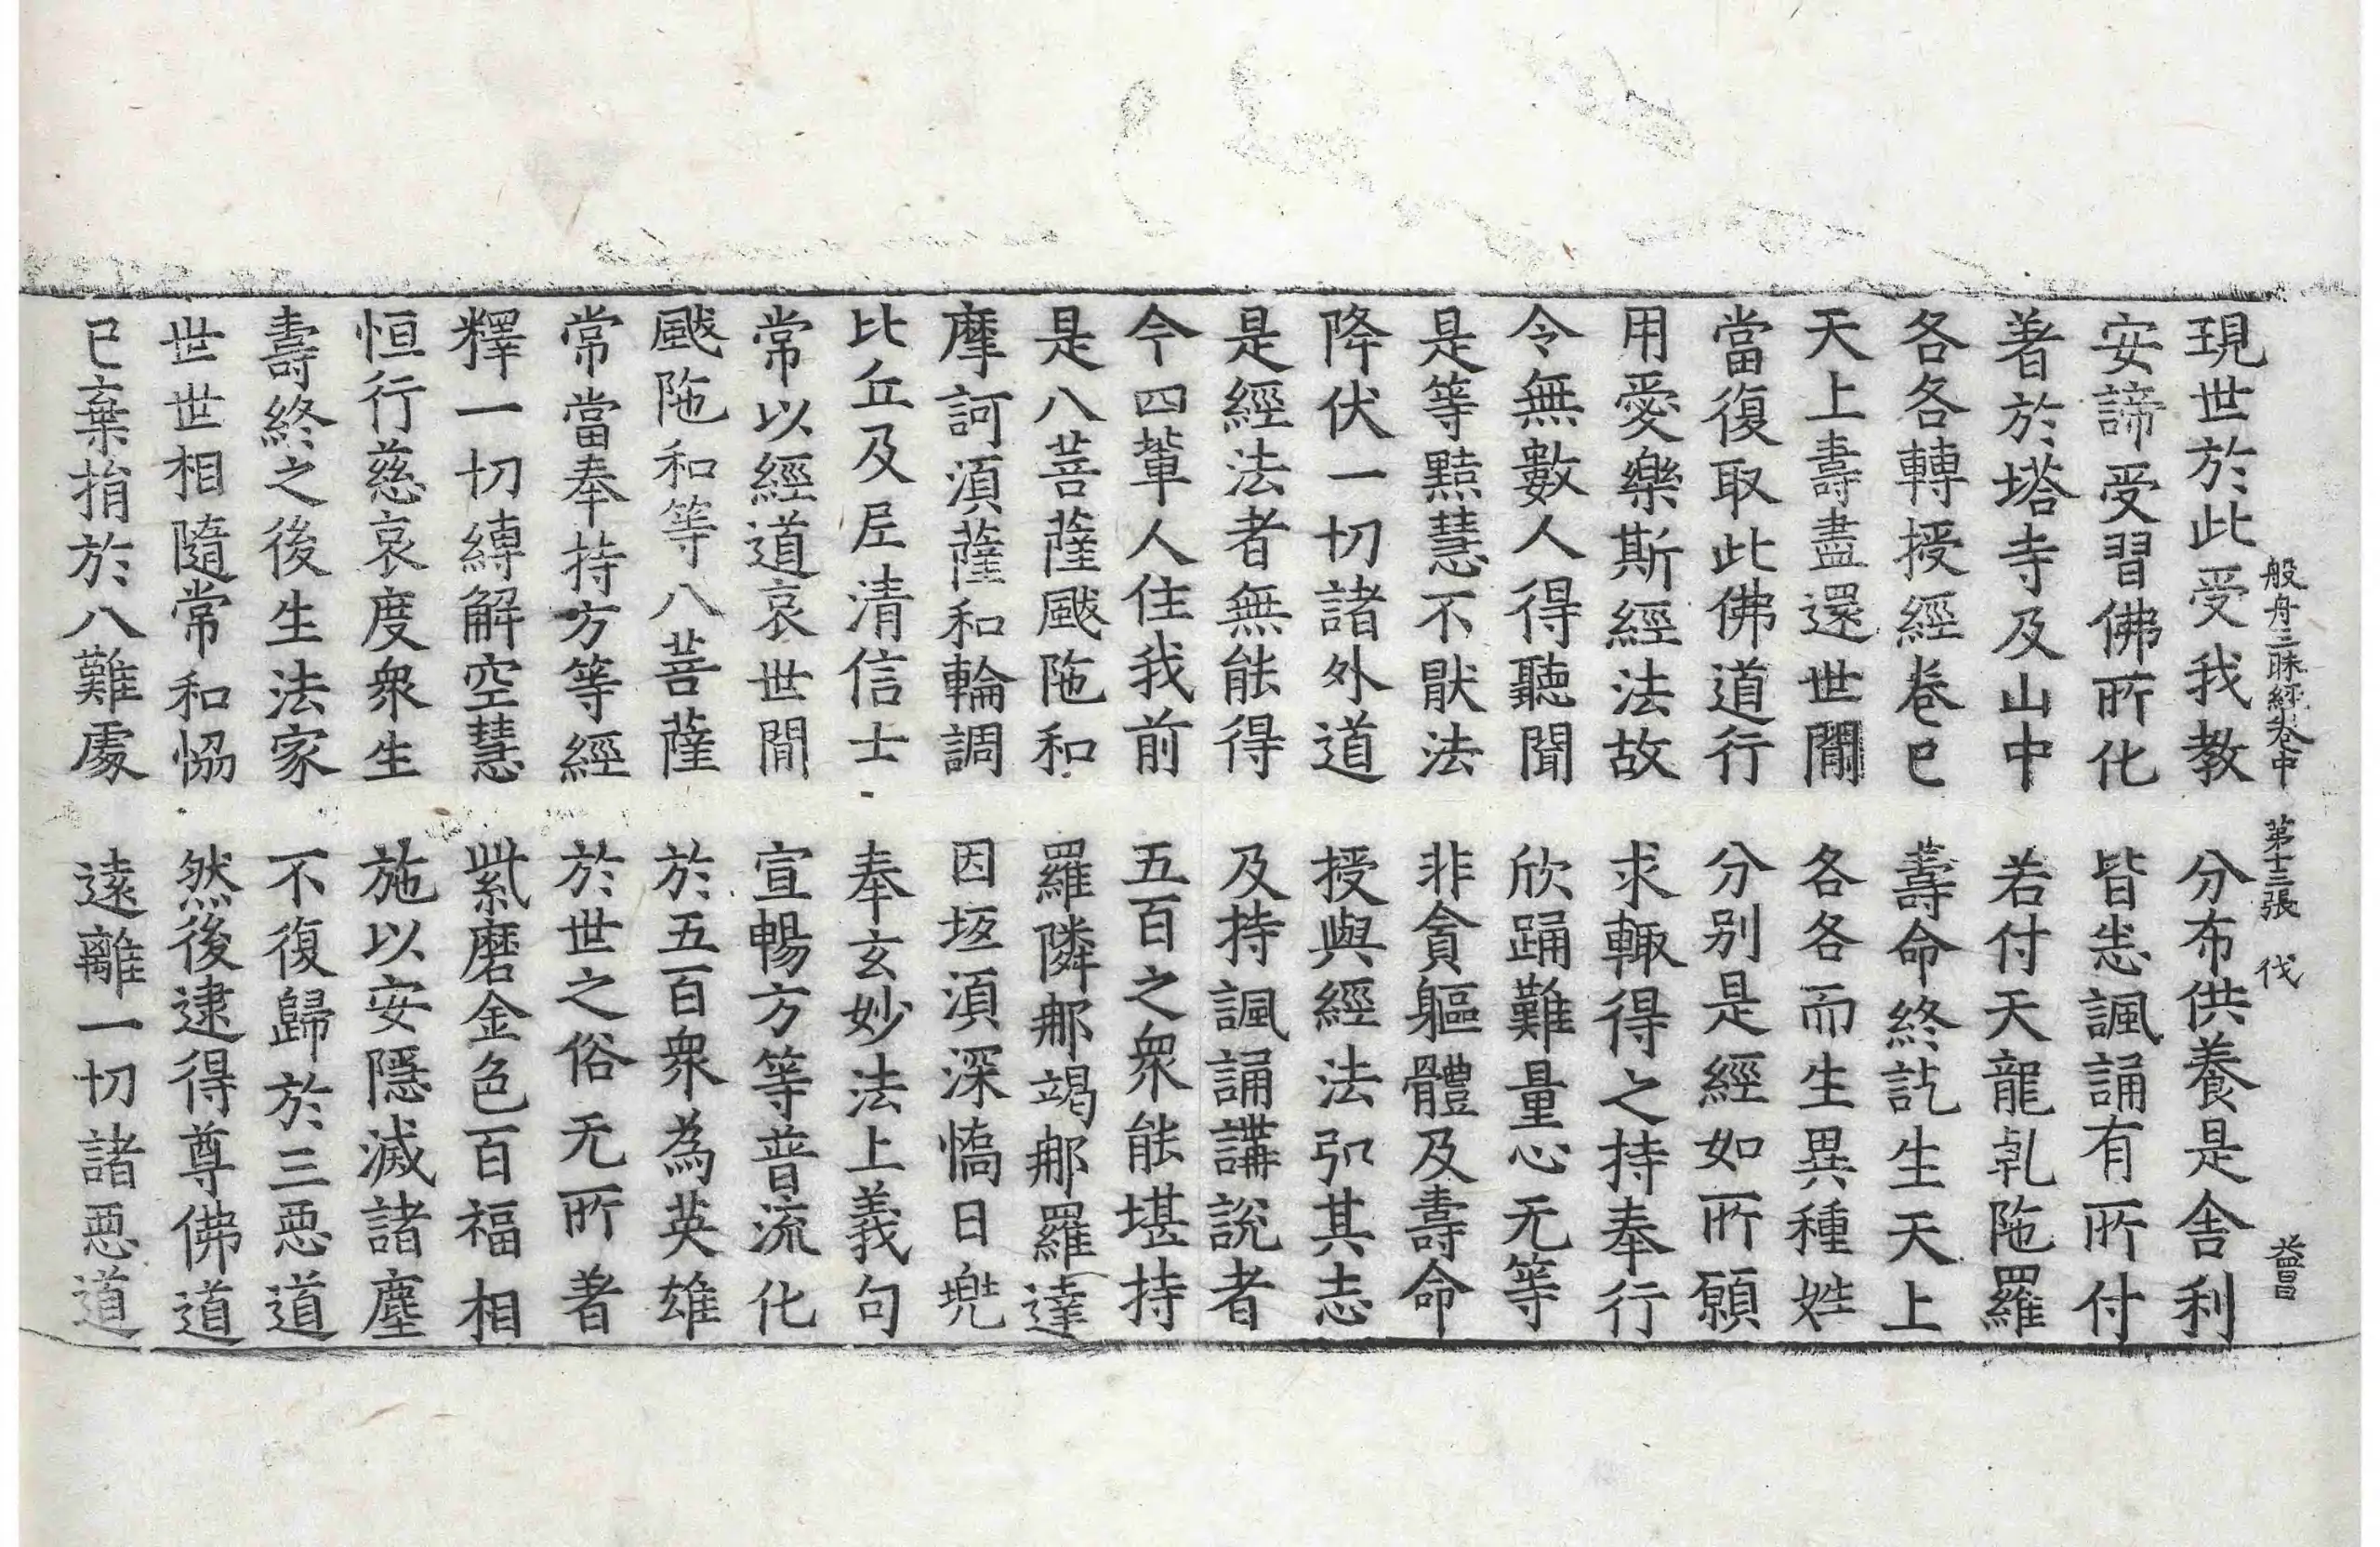 般舟三昧經卷中 第十三張 伐 益昌
現世於此受我教 分布供養是舍利
安諦受習佛所化 皆悉諷誦有所付
著於塔寺及山中 若付天龍乹陁羅
各各轉授經卷已 壽命終訖生天上
天上壽盡還世閒 各各而生異種姓
當復取此佛道行 分別是經如所願
用愛樂斯經法故 求輙得之持奉行
令無數人得聽聞 欣踊難量心无等
是等黠慧不猒法 非貪軀體及壽命
降伏一切諸外道 授與經法弘其志
是經法者無能得 及持諷誦講說者
今四輩人住我前 五百之衆能堪持
是八菩薩颰陁和 羅隣那竭那羅達
摩訶湏薩和輪調 因坻湏深憍日兠
比丘及尼清信士 奉玄妙法上義句
常以經道哀世閒 宣暢方等普流化
颰陁和等八菩薩 於五百衆為英雄
常當奉持方等經 於世之俗无所著
釋一切縛解空慧 紫磨金色百福相
恒行慈哀度衆生 施以安隱滅諸塵
壽終之後生法家 不復歸於三惡道
世世相隨常和恊 然後逮得尊佛道
已棄捐於八難處 遠離一切諸惡道